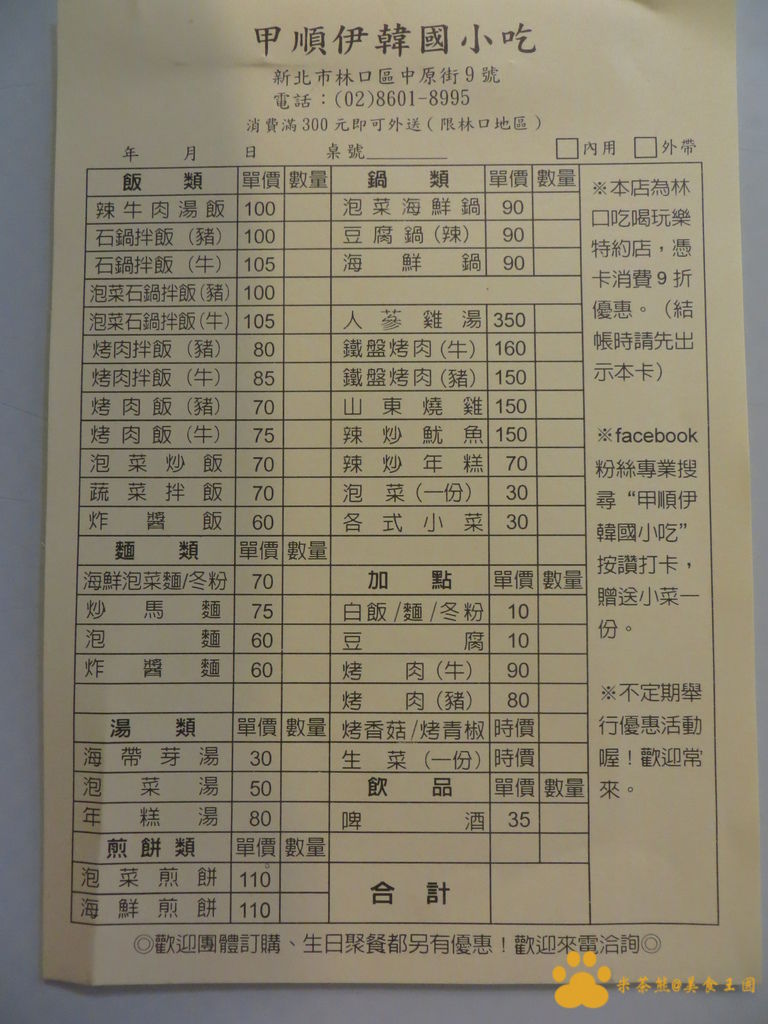 甲順伊韓國小吃
新北市林口區中原街9號
電話：(02)8601-8995
消費滿300元即可外送(限林口地區)
年 月 日 桌號________ □內用 □外帶
飯類 單價 數量 鍋類 單價 數量
辣牛肉湯飯 100 泡菜海鮮鍋 90
石鍋拌飯（豬） 100 豆腐鍋(辣) 90
石鍋拌飯（牛） 105 海鮮鍋 90
泡菜石鍋拌飯(豬) 100
泡菜石鍋拌飯(牛) 105 人蔘雞湯 350
烤肉拌飯（豬） 80 鐵盤烤肉(牛) 160
烤肉拌飯（牛） 85 鐵盤烤肉(豬) 150
烤肉飯（豬） 70 山東燒雞 150
烤肉飯（牛） 75 辣炒魷魚 150
泡菜炒飯 70 辣炒年糕 70
蔬菜拌飯 70 泡菜(一份) 30
炸醬飯 60 各式小菜 30
麵類 單價 數量
海鮮泡菜麵/冬粉 70 加點 單價 數量
炒馬麵 75 白飯/麵/冬粉 10
泡麵 60 豆腐 10
炸醬麵 60 烤肉(牛) 90
烤肉(豬) 80
湯類 單價 數量 烤香菇/烤青椒 時價
海帶芽湯 30 生菜(一份) 時價
泡菜湯 50 飲品 單價 數量
年糕湯 80 啤酒 35
煎餅類 單價 數量
泡菜煎餅 110 合計
海鮮煎餅 110
※本店為林
口吃喝玩樂
特約店，憑
卡消費9折
優惠。（結
帳時請先出
示本卡）
※facebook
粉絲專業搜
尋“甲順伊
韓國小吃”
按讚打卡，
贈送小菜一
份。
※不定期舉
行優惠活動
喔！歡迎常
來。
◎歡迎團體訂購、生日聚餐都另有優惠！歡迎來電洽詢◎
米茶熊@美食王國